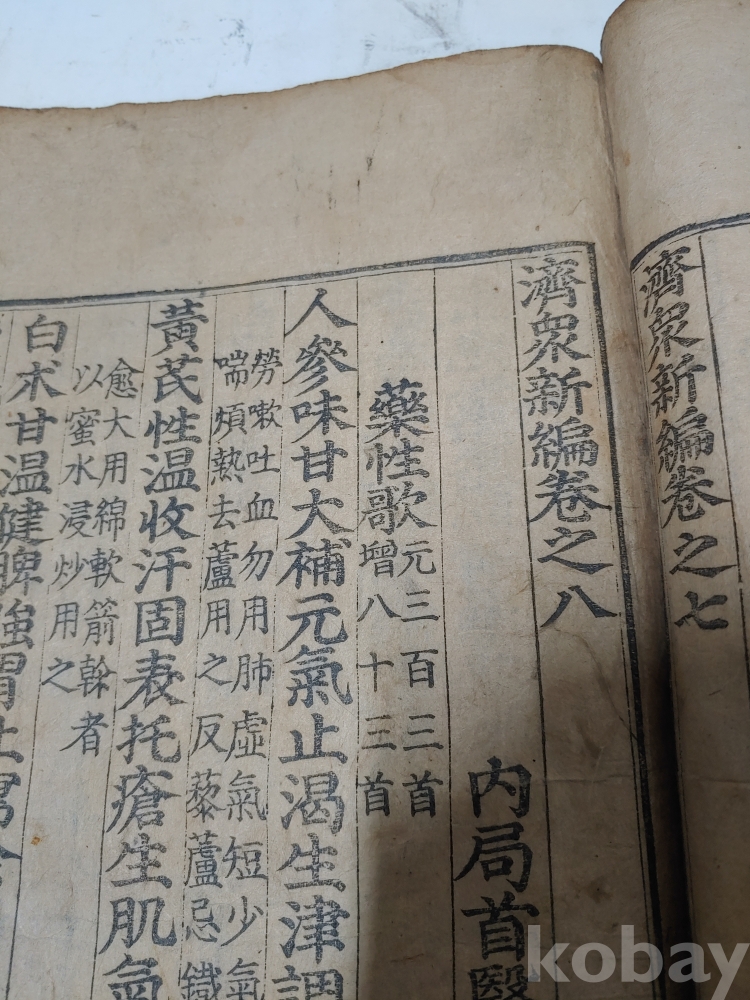 濟衆新編卷之七
濟衆新編卷之八
內局首醫
藥性歌元三百三首
增八十三首
人參味甘大補元氣止渴生津調
勞嗽吐血勿用肺虛氣短少氣
喘煩熱去蘆用之反藜蘆忌鐵
黃芪性温收汗固表托瘡生肌氣
愈大用綿軟箭幹者
以蜜水浸炒用之
白朮甘温健脾強胃止
kobay